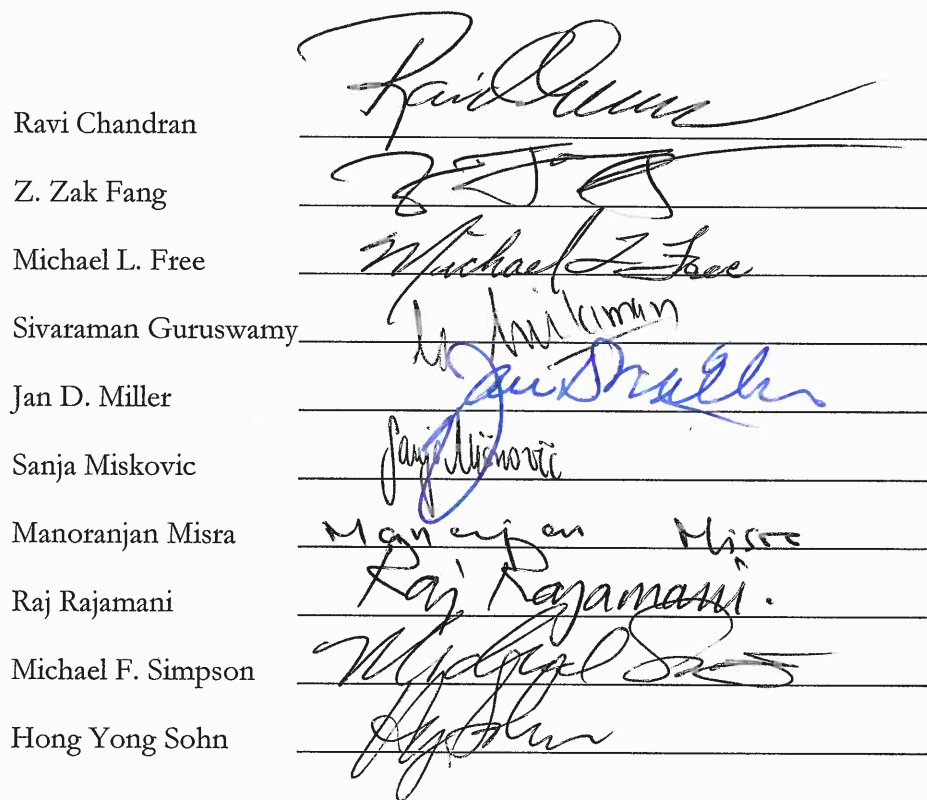 Ravi Chandran
Z. Zak Fang
Michael L. Free Michael L Free
Sivaraman Guruswamy
Jan D. Miller Jan D Miller
Sanja Miskovic Sanja Miskovic
Manoranjan Misra Manoranjan Misra
Raj Rajamani Raj Rajamani.
Michael F. Simpson Michael
Hong Yong Sohn Hy Sohn